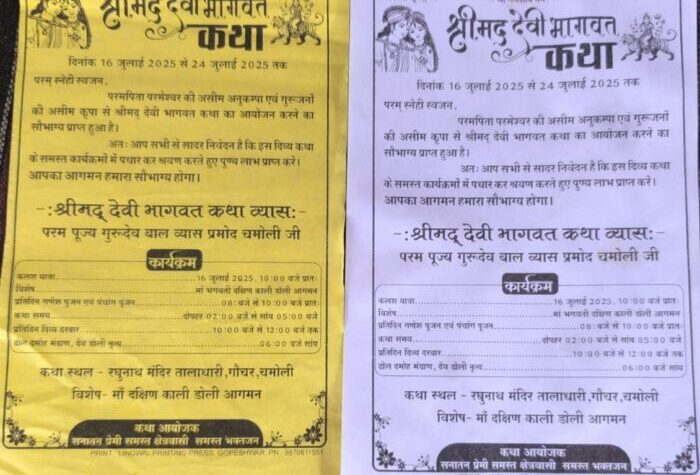 श्रीमद् देवी भागवत
कथा
दिनांक 16 जुलाई 2025 से 24 जुलाई 2025 तक
परम् स्नेही स्वजन,
परमपिता परमेश्वर की असीम अनुकम्पा एवं गुरूजनों
की असीम कृपा से श्रीमद् देवी भागवत कथा का आयोजन करने का
सौभाग्य प्राप्त हुआ है।
अतः आप सभी से सादर निवेदन है कि इस दिव्य कथा
के समस्त कार्यक्रमों में पधार कर श्रवण करते हुए पुण्य लाभ प्राप्त करें।
आपका आगमन हमारा सौभाग्य होगा।
-:श्रीमद् देवी भागवत कथा व्यास:-
परम पूज्य गुरूदेव बाल व्यास प्रमोद चमोली जी
कार्यक्रम
कलश यात्रा 16 जुलाई 2025, 10:00 बजे प्रातः
विशेष मां भगवती दक्षिण काली डोली आगमन
प्रतिदिन गणेश पूजन एवं पंचांग पूजन 08: बजे से 10:00 बजे प्रातः
कथा समय दोपहर 02:00 बजे से सांय 05:00 बजे
प्रतिदिन दिव्य दरबार 10:00 बजे से 12:00 बजे तक
ढोल दमोह मंडाण, देव डोली नृत्य 06:00 बजे सांय
कथा स्थल - रघुनाथ मंदिर तालाधारी,गौचर,चमोली
विशेष- माँ दक्षिण काली डोली आगमन
कथा आयोजक
सनातन प्रेमी समस्त क्षेत्रवासी समस्त भक्तजन
PRINT LINGWAL PRINTING PRESS GOPESHWAR PH. 9870811551
श्रीमद् देवी भागवत
कथा
दिनांक 16 जुलाई 2025 से 24 जुलाई 2025 तक
परम् स्नेही स्वजन,
परमपिता परमेश्वर की असीम अनुकम्पा एवं गुरूजनों
की असीम कृपा से श्रीमद् देवी भागवत कथा का आयोजन करने का
सौभाग्य प्राप्त हुआ है।
अतः आप सभी से सादर निवेदन है कि इस दिव्य कथा
के समस्त कार्यक्रमों में पधार कर श्रवण करते हुए पुण्य लाभ प्राप्त करें।
आपका आगमन हमारा सौभाग्य होगा।
-:श्रीमद् देवी भागवत कथा व्यास:-
परम पूज्य गुरूदेव बाल व्यास प्रमोद चमोली जी
कार्यक्रम
कलश यात्रा 16 जुलाई 2025, 10:00 बजे प्रातः
विशेष मां भगवती दक्षिण काली डोली आगमन
प्रतिदिन गणेश पूजन एवं पंचांग पूजन 08: बजे से 10:00 बजे प्रातः
कथा समय दोपहर 02:00 बजे से सांय 05:00 बजे
प्रतिदिन दिव्य दरबार 10:00 बजे से 12:00 बजे तक
ढोल दमोह मंडाण, देव डोली नृत्य 06:00 बजे सांय
कथा स्थल - रघुनाथ मंदिर तालाधारी,गौचर,चमोली
विशेष- माँ दक्षिण काली डोली आगमन
कथा आयोजक
सनातन प्रेमी समस्त क्षेत्रवासी समस्त भक्तजन